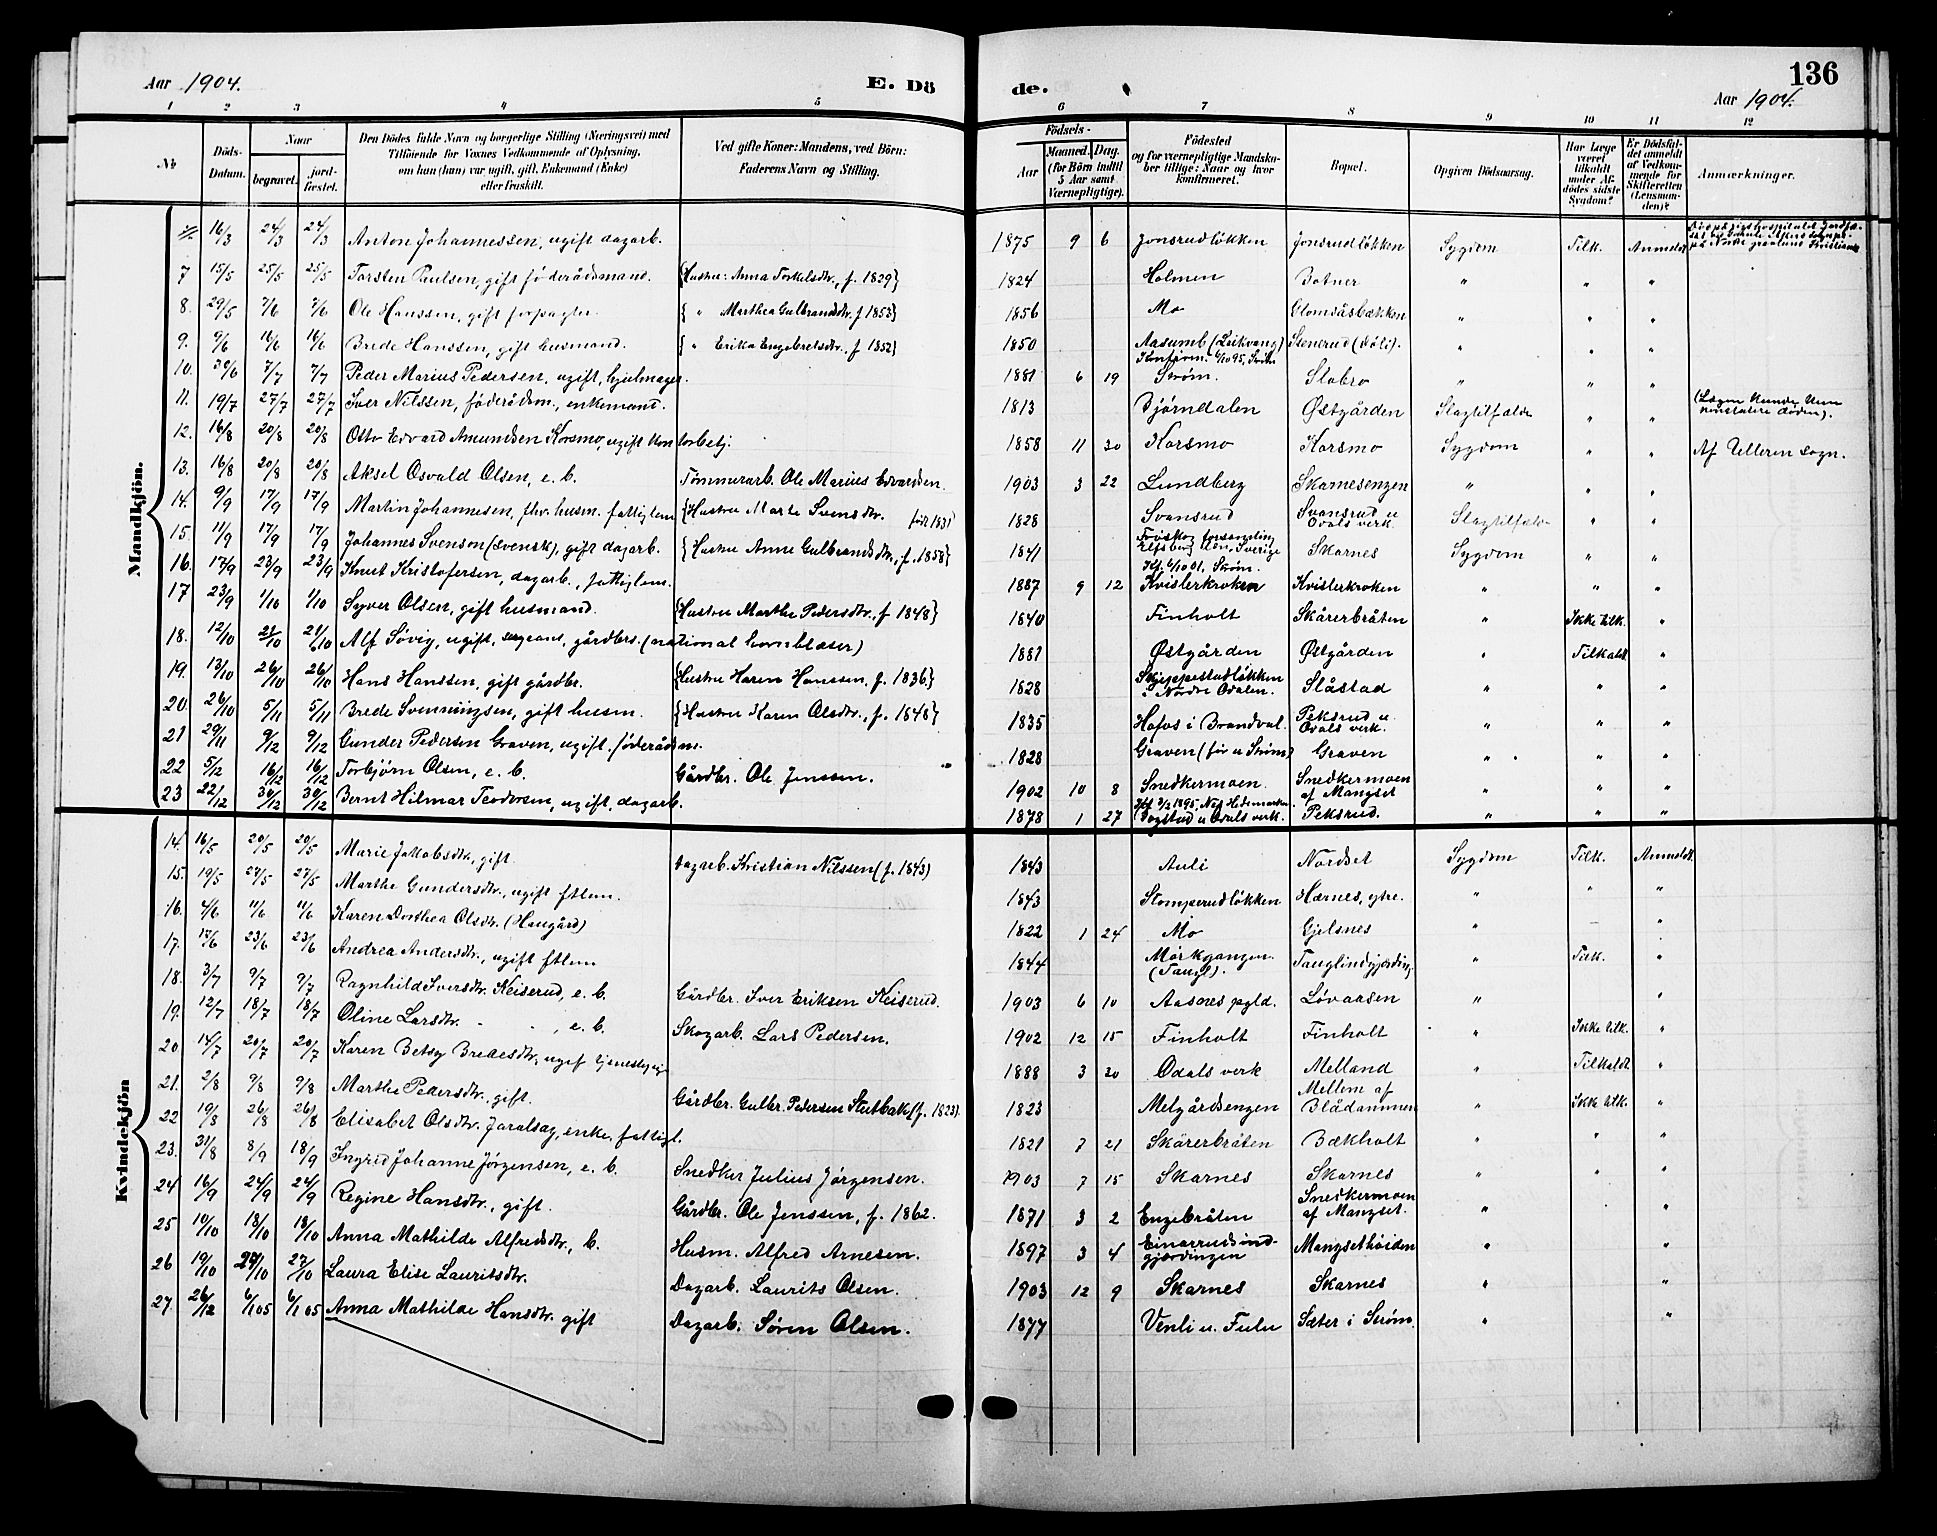 136
Aar 1904. E. Dö de. Aar 1904.
1 2 3 4 5 6 7 8 9 10 11 12
No
Döds-Datum.
Naar begravet. jordfæstet.
Den Dödes fulde Navn og borgerlige Stilling (Næringsvei) med
Tilföiende for Voxnes Vedkommende af Oplysning,
om hun (han) var ugift, gift, Enkemand (Enke)
eller fraskilt.
Ved gifte Koner: Mandens, ved Börn:
Faderens Navn og Stilling.
Födsels-
Aar Maaned. Dag.
(for Börn indtil
5 Aar samt
Værnepligtige).
Födested
og for værnepligtige Mandska-
ber tillige: Naar og hvor
konfirmeret.
Bopæl.
Opgiven Dödsaarsag.
Har Læge
været
tilkaldt
under Af-
dödes sidste
Sygdom?
Er Dödsfal-
det anmeldt
af Vedkom-
mende for
Skifteretten
(Lensman-
den)?
Anmærkninger.
Mandkjön.
16/3 24/3 24/3 Anton Johannessen, ugift dagarb. 1875 9 6 Jonsrudløkken Jonsrudløkken Sygdom Tilk. Anmeldt
7 15/5 25/5 25/5 Torsten Paulsen, gift føderådsmand. {Hustru: Anna Torkelsdtr., f. 1829} 1824 Holmen Botner " " "
8. 29/5 7/6 7/6 Ole Hanssen, gift forpagter. { " Marthea Gulbrandsdtr. f 1853} 1856 Mo Glomsåsbækken " " "
9. 9/6 16/6 16/6 Brede Hanssen, gift husmand. { " Erika Engebretsdtr. f 1852} 1850 Aasumb (Leikvang) Stenerud (Nøli). " " "
10. 30/6 7/7 7/7 Peder Marius Pedersen, ugift, hjulmager. 1881 6 19 Konfirm. 6/10 95, Strøm. Slobro " " "
11. 19/7 27/7 27/7 Iver Nilssen, føderådsm., enkemand. 1813 Bjørndalen Østgården Slagtilfælde " " (Lægen kunde kun konstatere døden).
12. 16/8 20/8 20/8 Otto Edvard Amundsen Korsmo, ugift kontorbetj. 1858 11 20 Korsmo Korsmo Sygdom " " Af Ulleren sogn.
13. 16/8 20/8 20/8 Aksel Osvald Olsen, e. b. Tømmerarb. Ole Marius Edvardsen. 1903 3 22 Lundberg Skarnesengen " " "
14. 9/9 17/9 17/9 Martin Johannesen, fhv. husm. fattiglem {Hustru Marte Svensdtr. født 1831} 1828 Svansrud Svansrud u Odals verk. Slagtilfælde " "
15. 11/9 17/9 17/9 Johannes Svenson (svensk), gift dagarb. {Hustru Anne Gulbrandsdtr., f. 1858} 1841 forsamling Sverige Skarnes Sygdom " "
16. 17/9 23/9 23/9 Knut Kristofersen, dagarb., fattiglem. 1887 9 12 Kf. 6/10 01, Strøm. Kvislerkroken Kvislerkroken " " "
17 23/9 1/10 1/10 Syver Olsen, gift husmand. {Hustru Marthe Pedersdtr., f 1848} 1840 Finholt Skårerbråten " Ikke tilk. "
18. 12/10 21/10 21/10 Alf Søvig, ugift, sergeant, gårdbrs. (national hornblæser) 1881 Østgården Østgården " Tilkaldt "
19. 13/10 26/10 26/10 Hans Hanssen, gift gårdbr. {Hustru Karen Hanssen, f. 1836} 1828 Skjeppestadløkken i Nordre Odalen. Slåstad " " "
20. 26/10 5/11 5/11 Brede Svenningsen, gift husm. {Hustru Karen Olsdtr., f. 1848} 1835 Hofos i Brandval. Peksrud u. Odals verk. " " "
21 29/11 9/12 9/12 Gunder Pedersen Graven, ugift. føderådsm. 1828 Graven (før u Strøm) Graven " " "
22 5/12 16/12 16/12 Torbjørn Olsen, e. b. Gårdbr. Ole Jenssen. 1902 10 8 Snedkermoen Snedkermoen af Mangset " " "
23 22/12 30/12 30/12 Bernt Hilmar Teodorsen, ugift, dagarb. 1878 1 27 Kf 1895, Nes Hedemarken. Dogstad u Odals verk. Peksrud. " " "
Kvindekjön
14. 16/5 20/5 20/5 Marie Jakobsdtr., gift Dagarb. Kristian Nilssen (f. 1843) 1843 Auli Nordset Sygdom Tilk. Anmeldt.
15. 19/5 27/5 27/5 Marthe Gundersdtr., ugift ftlem. 1843 Stomperudløkken Hærnes, ytre. " " "
16. 4/6 11/6 11/6 Karen Dorthea Olsdtr. (Haugård) 1822 1 24 Mo Gjelsnes " – "
17. 17/6 23/6 23/6 Andrea Andersdtr., ugift ftlem 1847 Mørkgangen (Taugl). Tauglindgjerding. " Tilk. "
18. 3/7 9/7 9/7 Ragnhild Iversdtr. Keiserud, e. b. Gårdbr. Iver Eriksen Keiserud. 1903 6 10 Aasnes pgld. Løvaasen " "
19. 12/7 18/7 18/7 Oline Larsdtr. - -, e. b. Skogarb. Lars Pedersen. 1902 12 15 Finholt Finholt " Ikke tilk. "
20 14/7 20/7 20/7 Karen Betsy Bredesdtr., ugift tjenestepige 1888 3 20 Odals verk Melland " Tilkaldt. "
21. 2/8 9/8 9/8 Marthe Pedersdtr., gift. Gårdbr. Gulbr. Pedersen Stutbak (f. 1823). 1823 Melgårdsengen Mellem af Blådammen " Ikke tilk. "
22 19/8 26/8 26/8 Elisabet Olsdtr. Jaralsag, enke, fattigl. 1821 7 21 Skårerbråten Bækholt " " "
23. 31/8 8/9 18/9 Ingrid Johanne Jørgensen, e. b. Snedker Julius Jørgensen. 1903 7 15 Skarnes Skarnes " " "
24 16/9 24/9 24/9 Regine Hansdtr., gift. Gårdbr. Ole Jenssen, f. 1862. 1871 3 2 Engebråten Snedkermoen af Mangset. " "
25 10/10 18/10 18/10 Anna Mathilde Alfredsdtr., b. Husm. Alfred Arnesen. 1897 3 4 Einarrudsindgjærdingen Mangsethøiden " "
26 19/10 27/10 27/10 Laura Elise Lauritsdtr. Dagarb. Laurits Olsen. 1903 12 9 Skarnes Skarnes " "
27. 26/12 6/1 05 6/1 05 Anna Mathilde Hansdtr. gift Dagarb. Søren Olsen. 1877 Venli u. Fulu Sæter i Strøm. " "